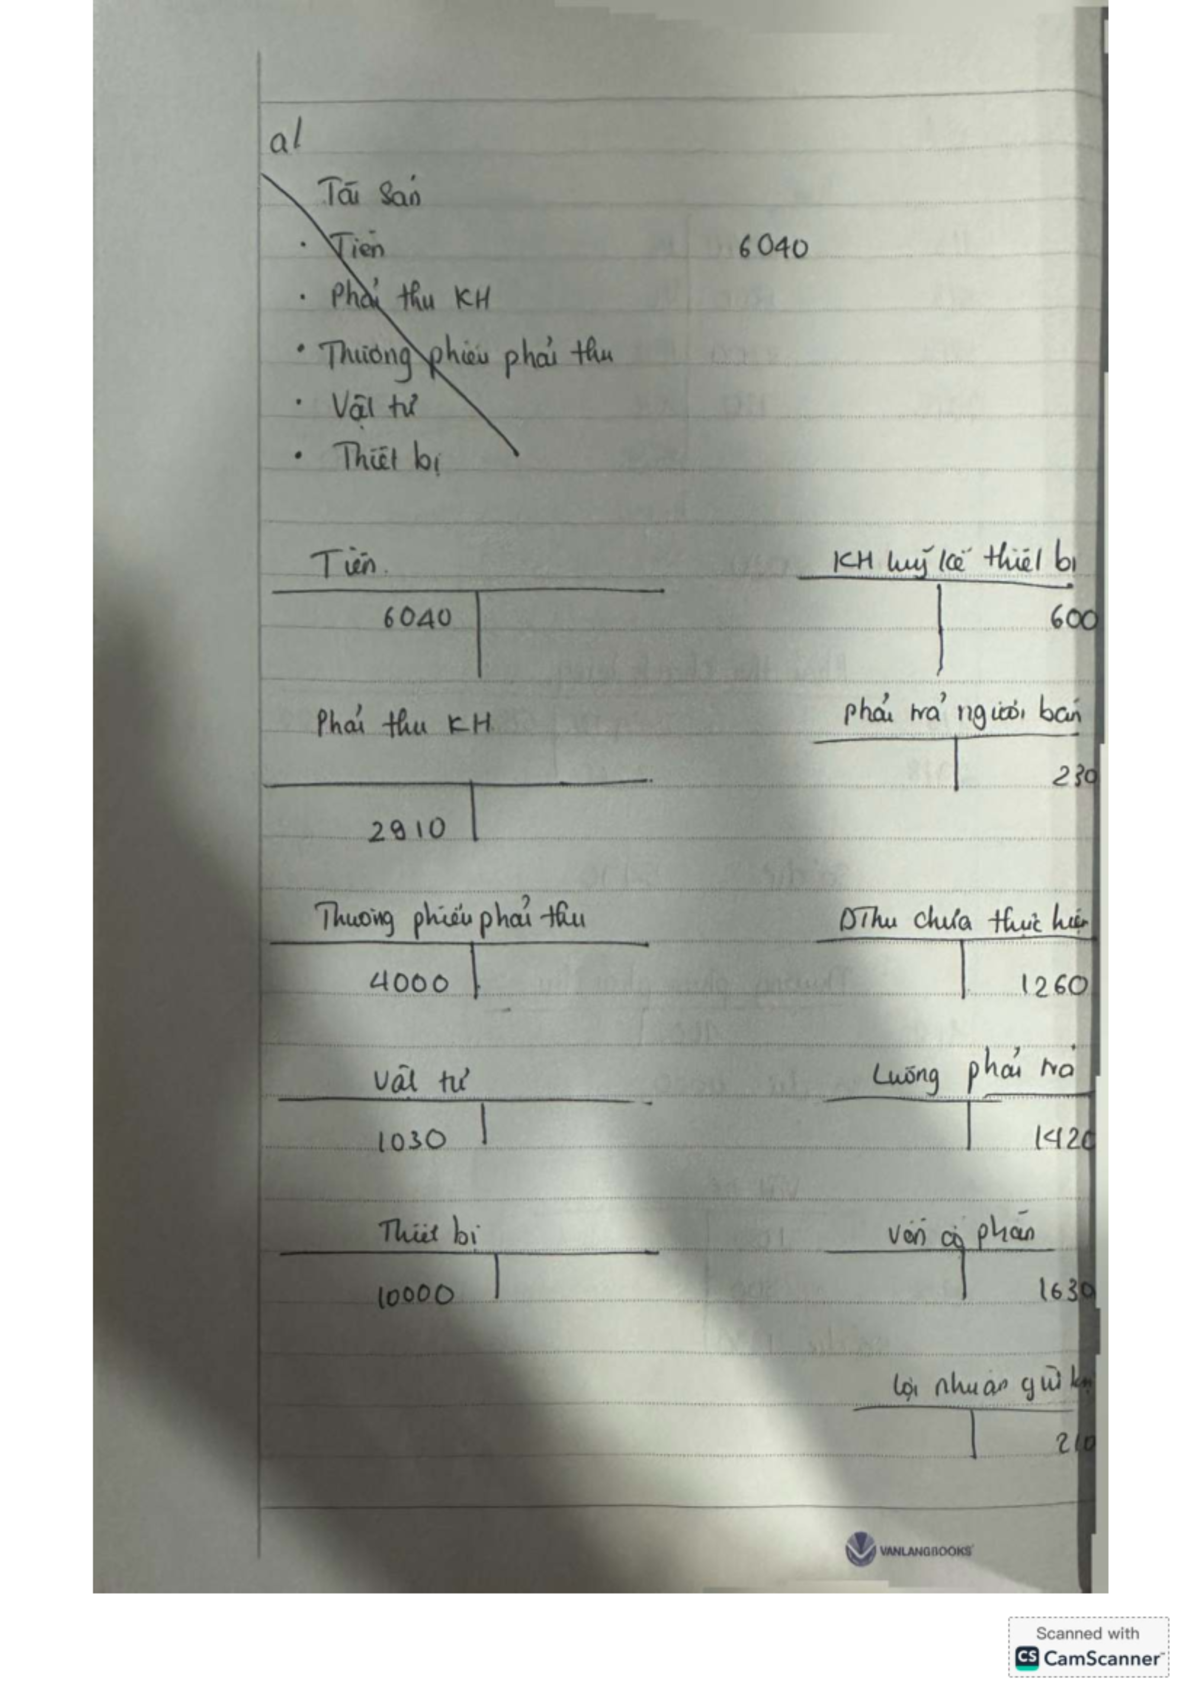 a/
Tài sản
· Tiền 6040
· Phải thu KH
· Thương phiếu phải thu
· Vật tư
· Thiết bị
Tiền. KH luỹ kế thiết bị
6040 600
Phải thu KH phải trả người bán
230
2910
Thương phiếu phải thu DThu chưa thực hiện
4000 1260
Vật tư Lương phải trả
1030 1420
Thiết bị vốn cổ phần
10000 1630
lợi nhuận giữ
210
VANLANGBOOKS
Scanned with
CS CamScanner